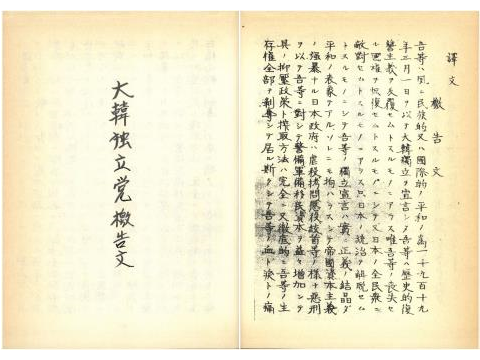 譯文
檄告文
吾等ハ夙ニ民族的又ハ國際的ノ平和ノ為一千九百十九
年三月一日ヲ以テ大韓獨立ヲ宣言シタ吾等ハ歴史的復
讐主義ヲ反覆セムトスルモノニアラス唯吾等ノ喪失セ
ル國權ヲ恢復セムトスルモノニシテ又日本ノ全民衆ニ
敵對セムトスルモノニアラス只日本ノ統治ヲ解脱セム
トスルモノニシテ吾等ノ獨立宣言ハ實ニ正義ノ結晶ダ
平和ノ表象デアルソレニモ拘ハラスシテ帝國資本主義
ノ强暴ナル日本政府ハ虐殺拷問懲役絞首等ノ樣ナ惡刑
ヲ以テ吾等ニ對シテ警備軍備移民資本ヲ益々增加シテ
其ノ抑壓政策ト搾取方法ハ完全ニ又徹底的ニ吾等ノ生
存權全部ヲ剥奪シテ居ル斯クシテ吾等ノ血ト淚トノ痛
大韓独立党檄告文